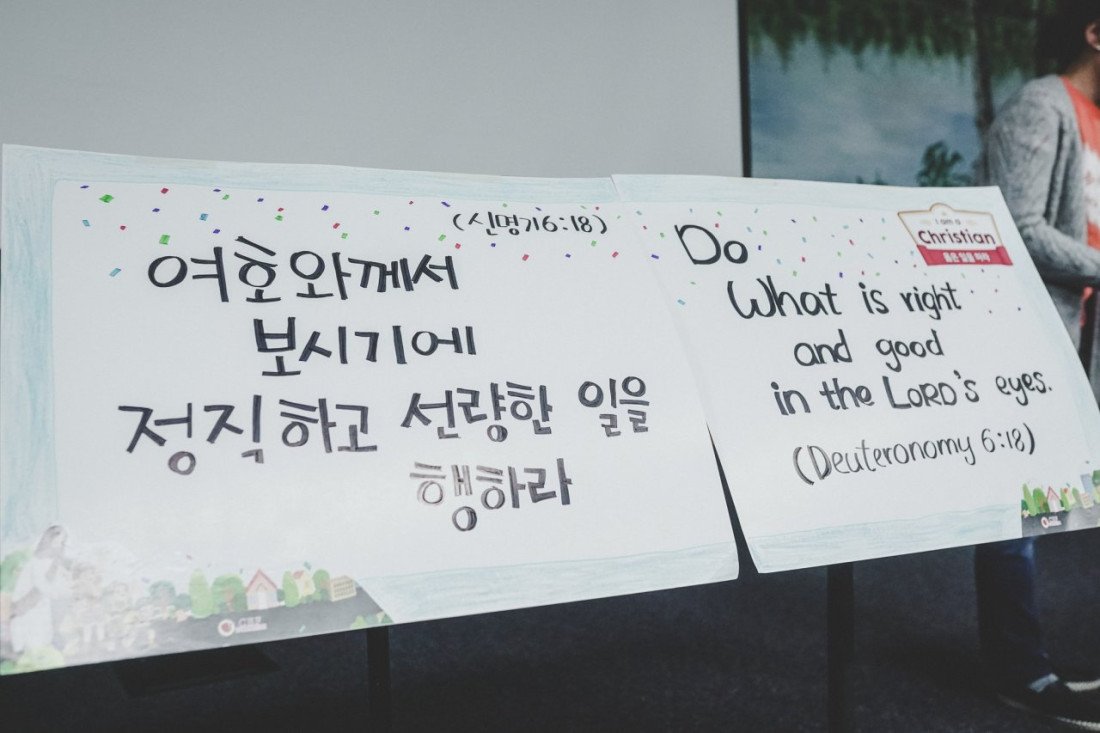 (신명기6:18)
여호와께서
보시기에
정직하고 선량한 일을
행하라
I am a
Christian
Do
What is right
and good
in the LORD's eyes.
(Deuteronomy 6:18)